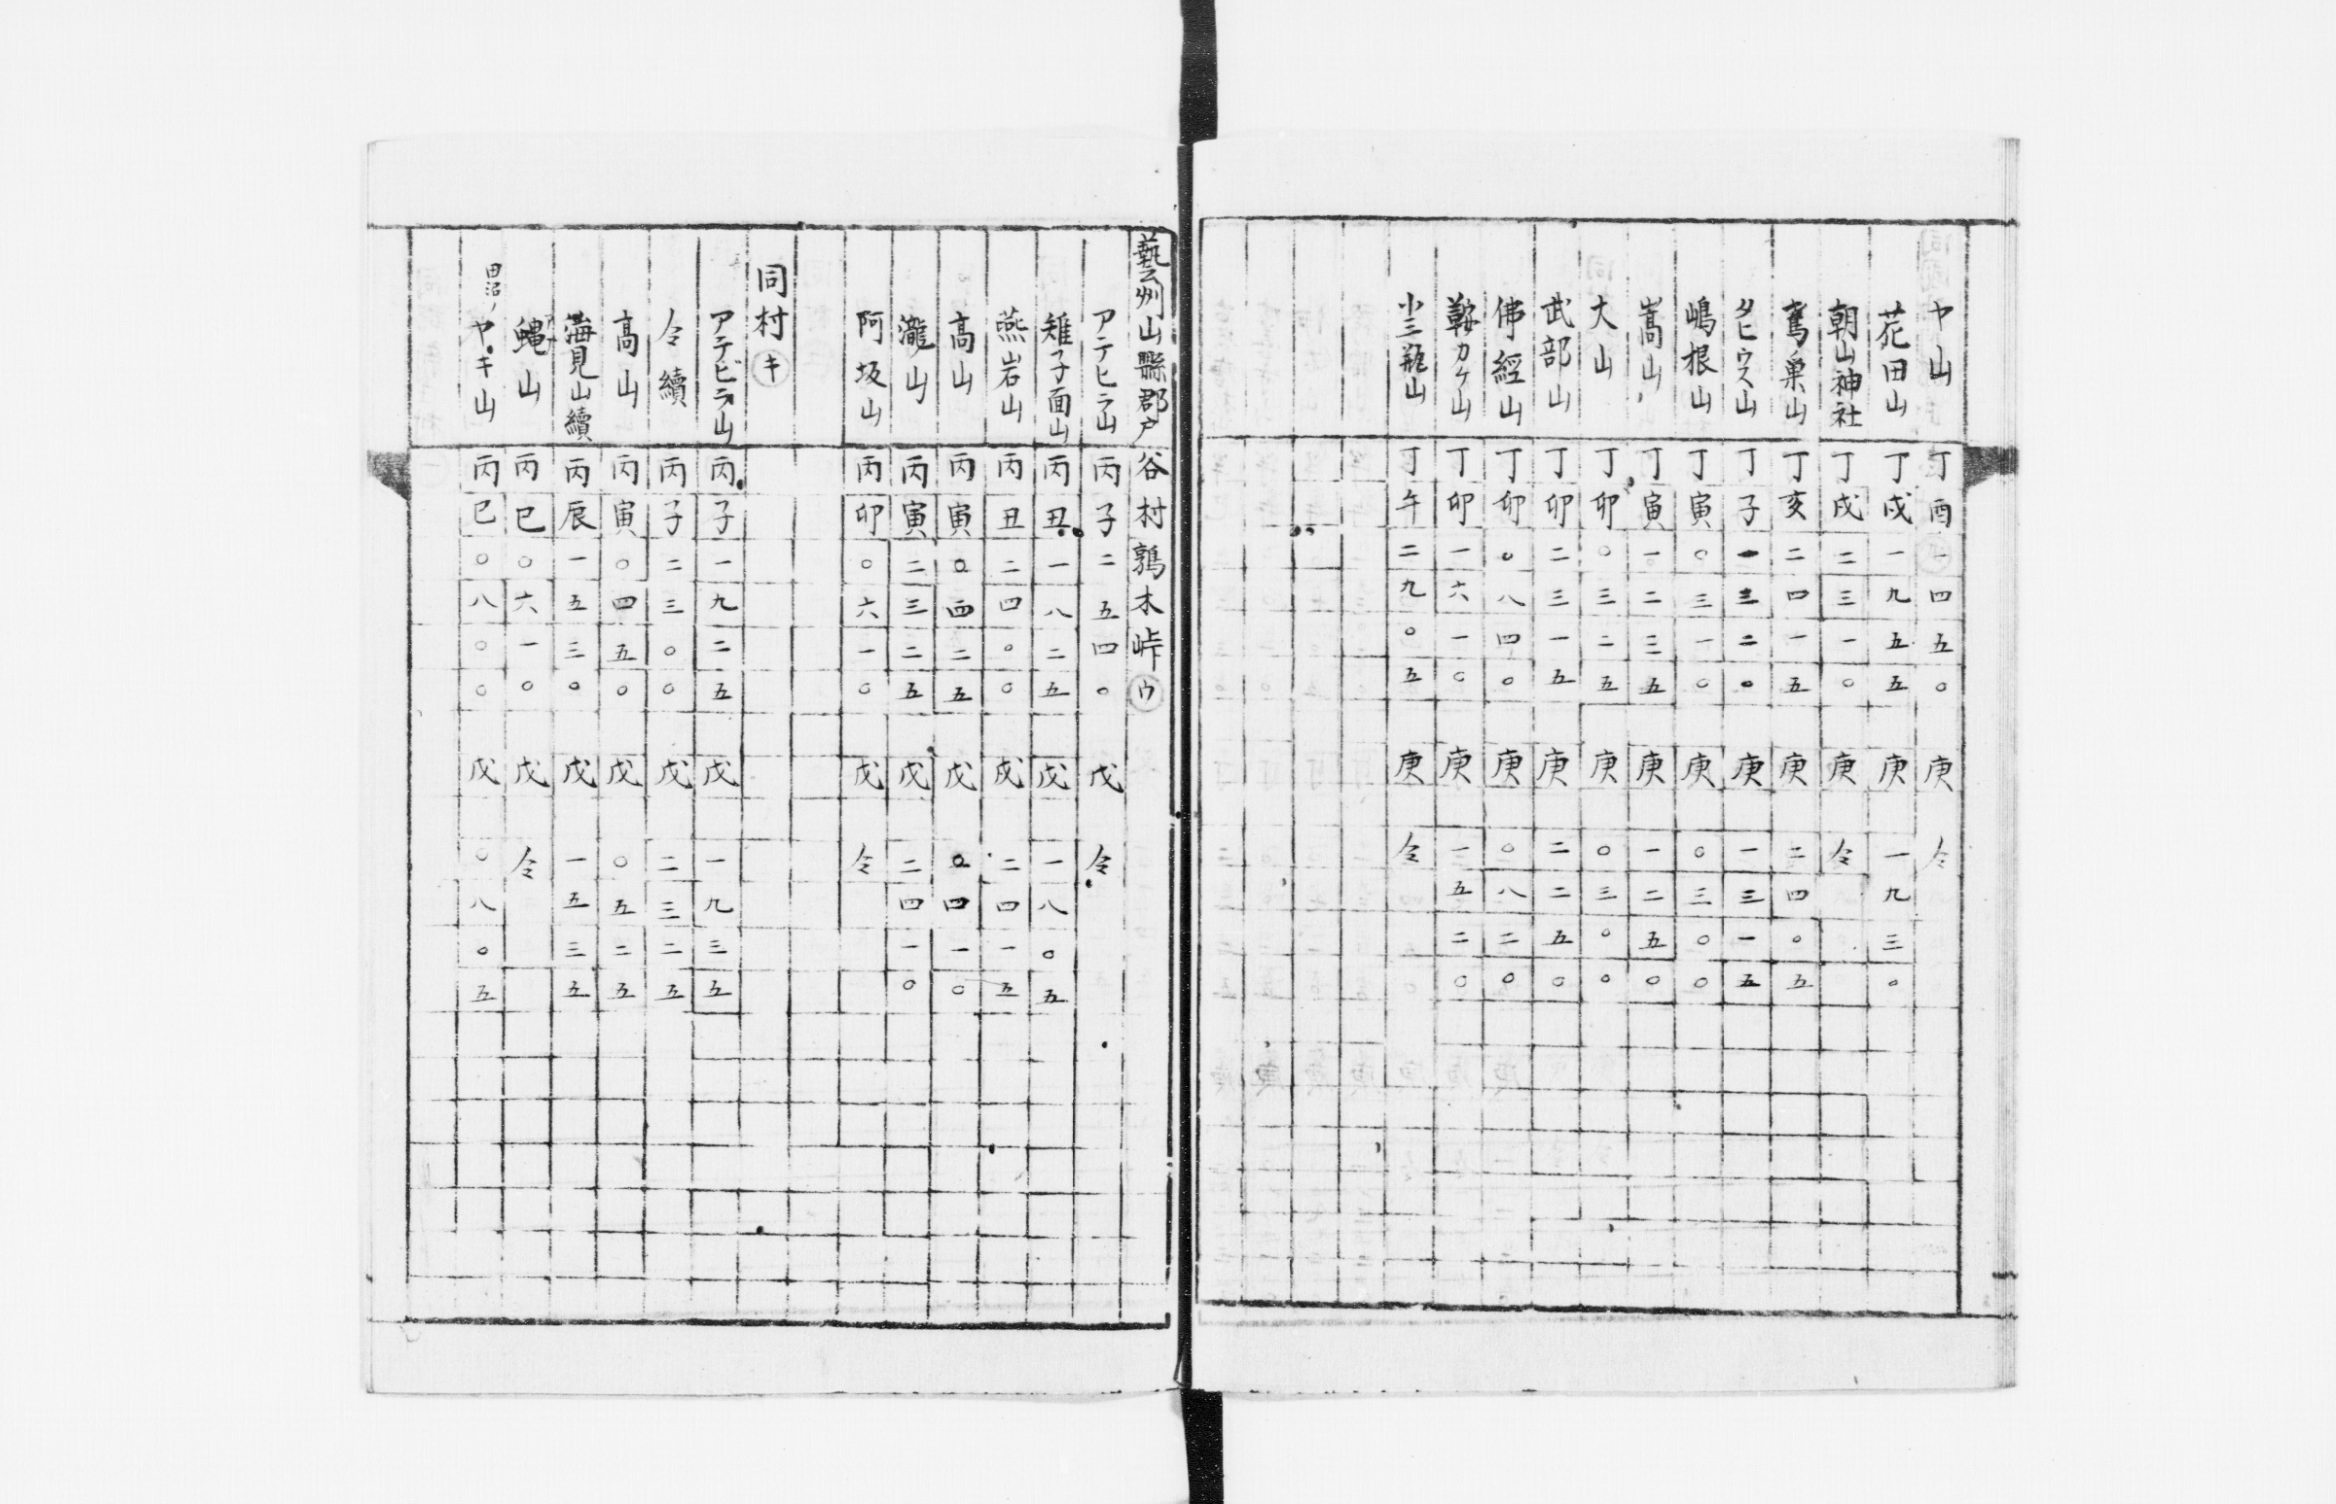 ヤ山 丁酉一四五〇 庚 仝
花田山 丁戌一九五五 庚一九三〇
朝山神社 丁戌二三一〇 庚 仝
鳶巣山 丁亥二四一五 庚二四〇五
タヒウス山 丁子一三二〇 庚一三一五
嶋根山 丁寅〇三一〇 庚〇三〇〇
嵩山 丁寅一二三五 庚一二五〇
大山 丁卯〇三二五 庚〇三〇〇
武部山 丁卯二三一五 庚二二五〇
佛經山 丁卯〇八四〇 庚〇八二〇
鞍カケ山 丁卯一六一〇 庚一五二〇
小三瓶山 丁午二九〇五 庚 仝
藝州山縣郡戸谷村鶉木峠 ウ
アテヒラ山 丙子二五四〇 戊 仝
雉子面山 丙丑一八二五 戊一八〇五
燕岩山 丙丑二四〇〇 戊二四一五
高山 丙寅〇四二五 戊〇四一〇
瀧山 丙寅二三二五 戊二四一〇
阿坂山 丙卯〇六一〇 戊 仝
同村 キ
アテビラ山 丙子一九二五 戊一九三五
仝續 丙子二三〇〇 戊二三二五
高山 丙寅〇四五〇 戊〇五二五
海見山續 丙辰一五三〇 戊一五三五
蝿山 丙巳〇六一〇 戊 仝
田沼ノヤキ山 丙巳〇八〇〇 戊〇八〇五